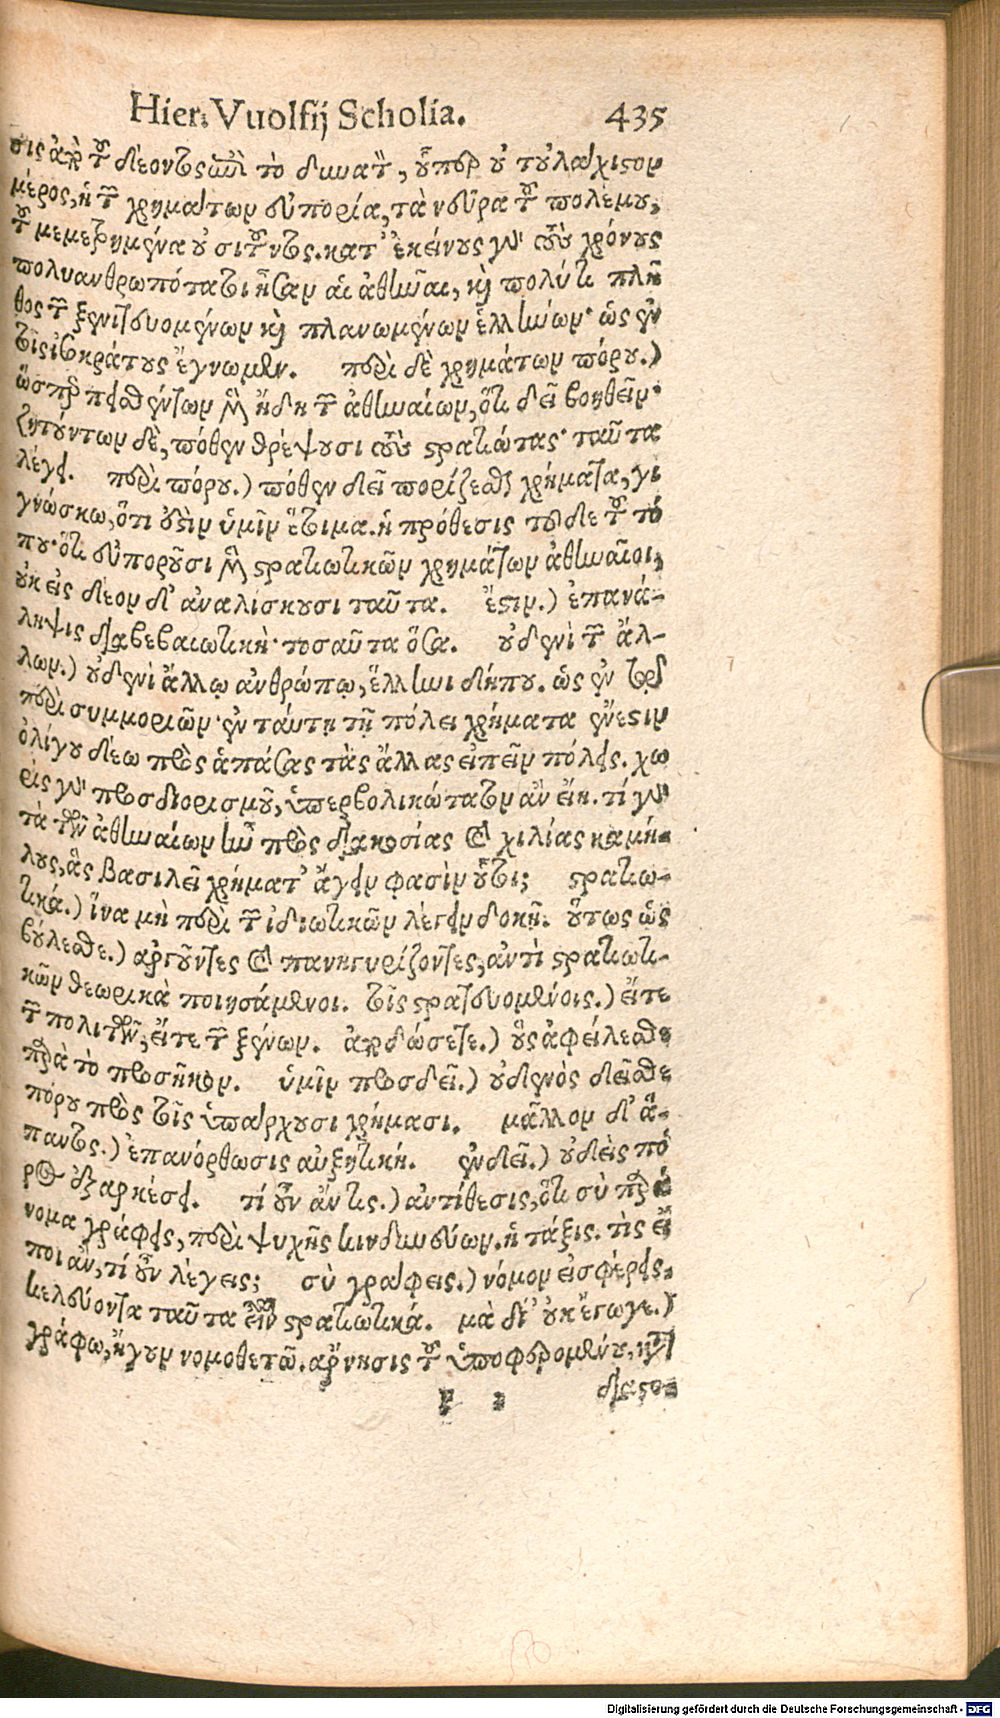 Hier. Vuolfij Scholia. 435
σις ἀπὸ τοῦ δέοντος ἐπὶ τὸ δυνατὸν, οὗπερ οὐ τοὐλάχιστον
μέρος, ἡ τῶν χρημάτων εὐπορία, τὰ νεῦρα τοῦ πολέμου,
τοῦ μεμετρημένα οὐ σιτοῦντος. κατ' ἐκείνους γὰρ τοὺς χρόνους
πολυανθρωπόταται ἦσαν αἱ ἀθῆναι, καὶ πολύ τι πλῆ
θος τῶν ξενιτευομένων καὶ πλανωμένων ἑλλήνων· ὡς ἐν
τοῖς ἰσοκράτους ἔγνωμεν. περὶ δὲ χρημάτων πόρου.)
ὥσπερ πεισθέντων μὲν ἤδη τῶν ἀθηναίων, ὅτι δεῖ βοηθεῖν·
ζητούντων δὲ, πόθεν θρέψουσι τοὺς στρατιώτας· ταῦτα
λέγει. περὶ πόρου.) πόθεν δεῖ πορίζεσθαι χρήματα, γι
γνώσκω, ὅτι οὖσιν ὑμῖν ἕτοιμα. ἡ πρόθεσις τοῦδε τοῦ τό
που· ὅτι εὐποροῦσι μὲν στρατιωτικῶν χρημάτων ἀθηναῖοι,
οὐκ εἰς δέον δ' ἀναλίσκουσι ταῦτα. ἔστιν.) ἐπανά-
ληψις διαβεβαιωτικὴ· τοσαῦτα ὅσα. οὐδενὶ τῶν ἄλ-
λων.) οὐδενὶ ἄλλῳ ἀνθρώπῳ, ἕλληνι δήπου. ὡς ἐν τῷ
περὶ συμμοριῶν· ἐν ταύτῃ τῇ πόλει χρήματα ἔνεστιν
ὀλίγου δέω πρὸς ἁπάσας τὰς ἄλλας εἰπεῖν πόλεις. χω
ρὶς γὰρ προσδιορισμοῦ, ὑπερβολικώτατον ἂν εἴη. τί γὰρ
τὰ τῶν ἀθηναίων ἦν πρὸς διακοσίας καὶ χιλίας καμή-
λους, ἃς βασιλεῖ χρήματ' ἄγειν φασὶν οὗτοι; στρατιω-
τικά.) ἵνα μὴ περὶ τῶν ἰδιωτικῶν λέγειν δοκῇ. οὕτως ὡς
βούλεσθε.) ἀργοῦντες καὶ πανηγυρίζοντες, ἀντὶ στρατιωτι-
κῶν θεωρικὰ ποιησάμενοι. τοῖς στρατευομένοις.) εἴτε
τῶν πολιτῶν, εἴτε τῶν ξένων. ἀποδώσετε.) οὓς ἀφείλεσθε
παρὰ τὸ προσῆκον. ὑμῖν προσδεῖ.) οὐδενὸς δεῖσθε
πόρου πρὸς τοῖς ὑπάρχουσι χρήμασι. μᾶλλον δ' ἅ-
παντος.) ἐπανόρθωσις αὐξητική. ἐνδεῖ.) οὐδεὶς πό
ρος ἐξαρκέσει. τί οὖν ἄν τις.) ἀντίθεσις, ὅτι σὺ παρά
νομα γράφεις, περὶ ψυχῆς κινδυνεύων. ἡ τάξις. τὶς εἴ
ποι ἂν, τί οὖν λέγεις; σὺ γράφεις.) νόμον εἰσφέρεις,
κελεύοντα ταῦτα εἶναι στρατιωτικά. μὰ δί' οὐκ ἔγωγε.)
γράφω, ἤγουν νομοθετῶ. ἄρνησις τοῦ ὑποφερομένου, κατὰ
διαστο-